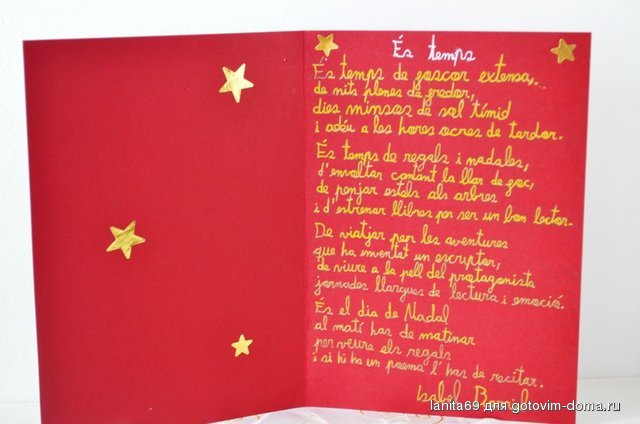 És temps
És temps de foscor extensa,
de nits plenes de fredor,
dies minsos de sol tímid
i adéu a les hores ocres de tardor.
És temps de regals i nadales,
d'envoltar cantant la llar de foc,
de penjar estels als arbres
i d'estrenar llibres per ser un bon lector.
De viatjar per les aventures
que ha inventat un escriptor,
de viure a la pell del protagonista
jornades llargues de lectura i emoció.
És el dia de Nadal
al matí has de matinar
per veure els regals
i si hi ha un poema l'has de recitar.
Isabel
lanita69 для gotovim-doma.ru